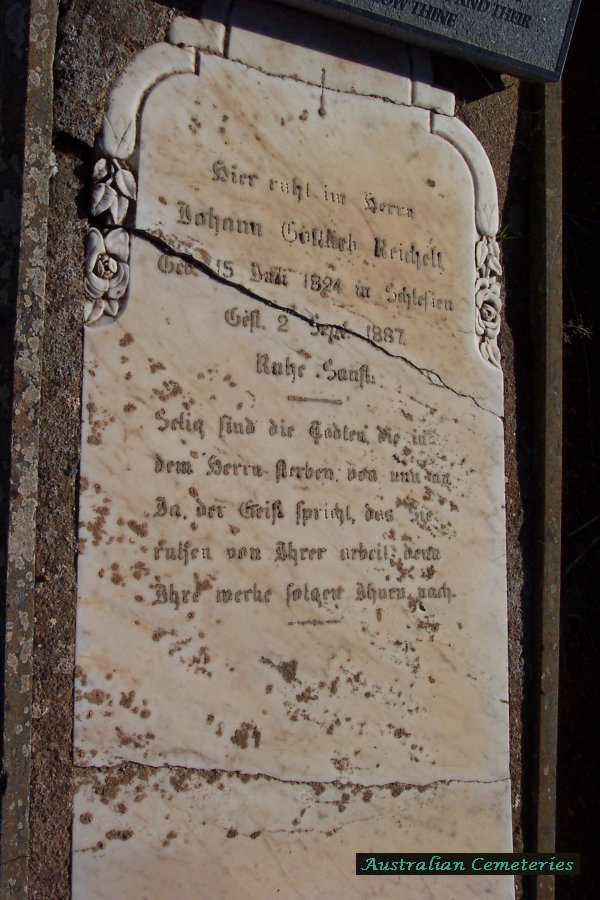 AND THEIR
OW THINE
Hier ruht im Herrn
Johann Gottlieb Reichelt
Geb. 15 Juli 1824 in Schlesien
Gest. 2 Sept. 1887.
Ruhe Sanft.
Selig sind die Todten, die in
dem Herrn sterben, von nun an
Ja, der Geist spricht, das sie
ruhen von Ihrer arbeit; denn
Ihre werke folgen Ihnen nach.
Australian Cemeteries